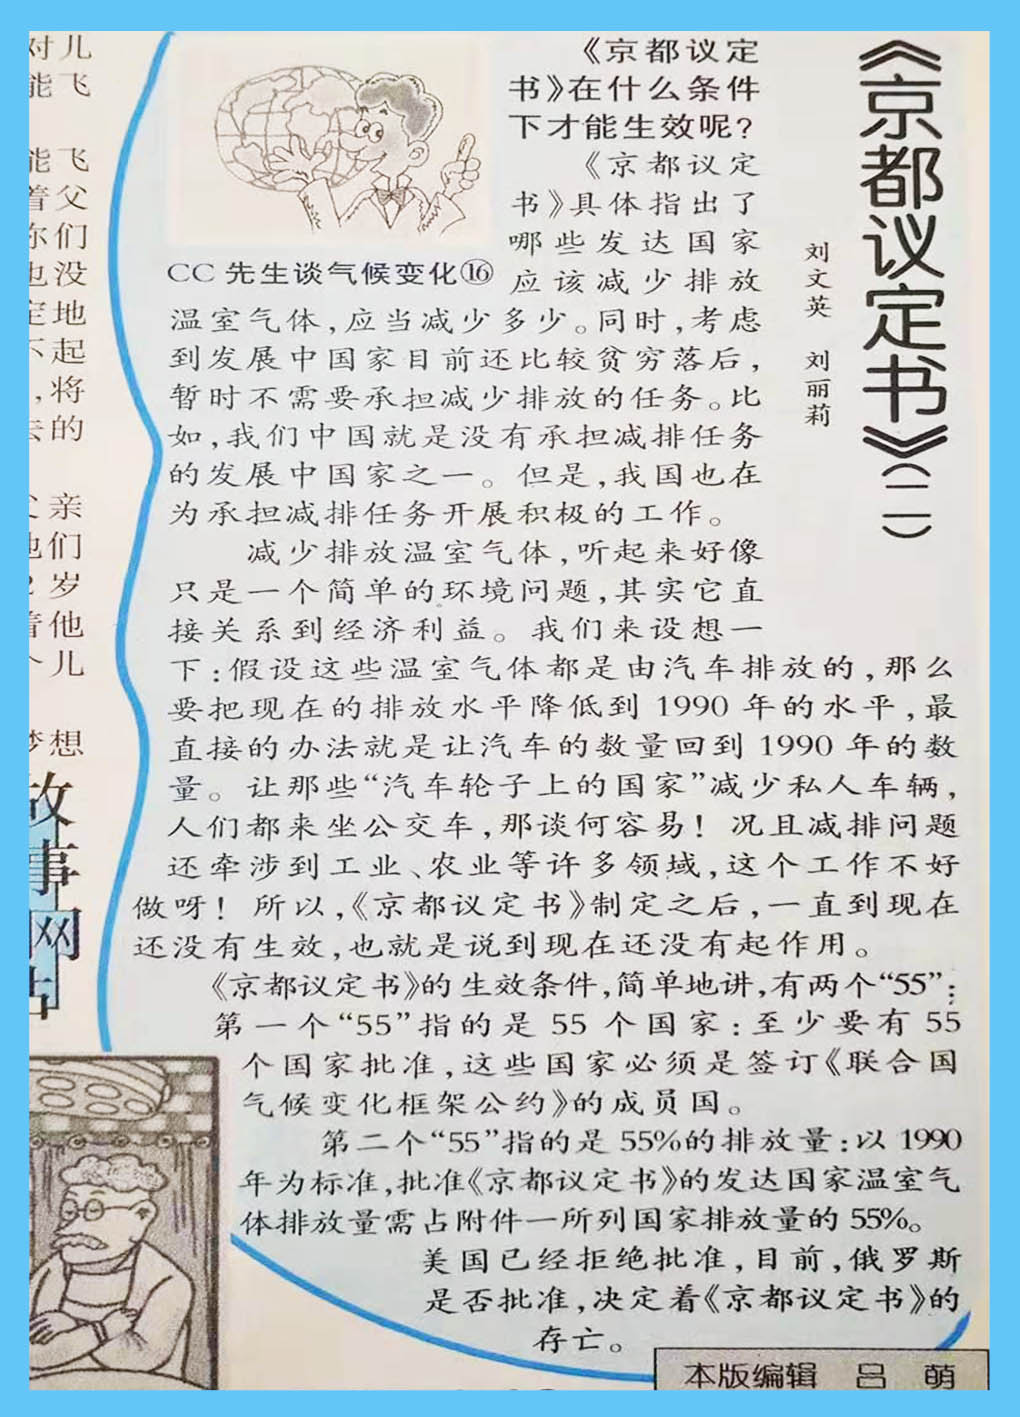 《京都议定书》(二)
刘文英 刘丽莉
《京都议定
书》在什么条件
下才能生效呢?
《京都议定
书》具体指出了
哪些发达国家
应该减少排放
CC 先生谈气候变化⑯
温室气体,应当减少多少。同时,考虑
到发展中国家目前还比较贫穷落后,
暂时不需要承担减少排放的任务。比
如,我们中国就是没有承担减排任务
的发展中国家之一。但是,我国也在
为承担减排任务开展积极的工作。
减少排放温室气体,听起来好像
只是一个简单的环境问题,其实它直
接关系到经济利益。我们来设想一
下:假设这些温室气体都是由汽车排放的,那么
要把现在的排放水平降低到 1990 年的水平,最
直接的办法就是让汽车的数量回到 1990 年的数
量。让那些“汽车轮子上的国家”减少私人车辆,
人们都来坐公交车,那谈何容易!况且减排问题
还牵涉到工业、农业等许多领域,这个工作不好
做呀!所以,《京都议定书》制定之后,一直到现在
还没有生效,也就是说到现在还没有起作用。
《京都议定书》的生效条件,简单地讲,有两个“55”:
第一个“55”指的是 55 个国家:至少要有 55
个国家批准,这些国家必须是签订《联合国
气候变化框架公约》的成员国。
第二个“55”指的是 55%的排放量:以 1990
年为标准,批准《京都议定书》的发达国家温室气
体排放量需占附件一所列国家排放量的 55%。
美国已经拒绝批准,目前,俄罗斯
是否批准,决定着《京都议定书》的
存亡。
本版编辑 吕 萌
对儿
能飞
能飞
着父
你们
也没
定地
不起
,将
去的
父亲
他们
2 岁
着他
个儿
梦想
故事网站